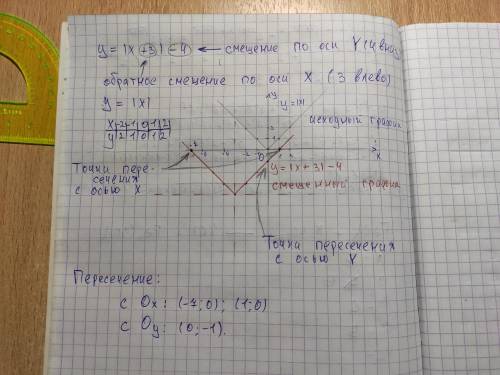 y = |x+3|-4 ← смещение по оси Y (4 вниз)
обратное смещение по оси X (3 влево)
y = |x|
x|-2|-1|0|1|2|
y|2|1|0|1|2
y
y=|x|
исходный график
x
0
-2
Точки пере-
сечения
с осью X
y=|x+3|-4
смещенный график
Точки пересечения
с осью Y
Пересечение:
с Ox: (-7;0); (1;0)
с Oy: (0;-1).